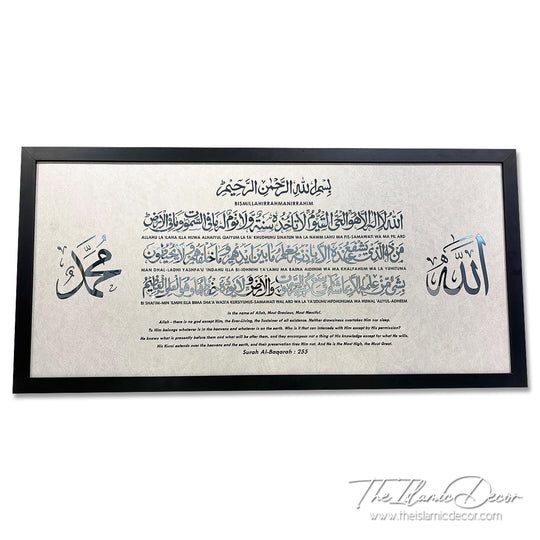 بِسْمِ اللهِ الرَّحْمٰنِ الرَّحِيْمِ
BISMILLAHIRRAHMANIRRAHIM
اللهُ لَا إِلٰهَ إِلَّا هُوَ الْحَيُّ الْقَيُّومُ لَا تَأْخُذُهُ سِنَةٌ وَلَا نَوْمٌ لَهُ مَا فِي السَّمَاوَاتِ وَمَا فِي الْأَرْضِ
ALLAHU LA ILAHA ILLA HUWA ALHAIYUL QAIYUM LA TA' KHUDHUHU SINATUN WA LA NAWM LAHU MA FIS-SAMAWATI WA MA FIL ARD
مَنْ ذَا الَّذِي يَشْفَعُ عِنْدَهُ إِلَّا بِإِذْنِهِ يَعْلَمُ مَا بَيْنَ أَيْدِيهِمْ وَمَا خَلْفَهُمْ وَلَا يُحِيطُونَ
MAN DHAL-LADHI YASHFA'U 'INDAHU ILLA BI-IDHNIHI YA'LAMU MA BAINA AIDIHIM WA MA KHALFAHUM WA LA YUHITUNA
بِشَيْءٍ مِنْ عِلْمِهِ إِلَّا بِمَا شَاءَ وَسِعَ كُرْسِيُّهُ السَّمَاوَاتِ وَالْأَرْضَ وَلَا يَئُودُهُ حِفْظُهُمَا وَهُوَ الْعَلِيُّ الْعَظِيمُ
BI SHAI'IM-MIN 'ILMIHI ILLA BIMA SHA'A WASI'A KURSIYUHUS-SAMAWATI WAL ARD WA LA YA'UDUHU HIFDHUHUMA WA HUWAL 'ALIYUL-ADHEEM
In the name of Allah, Most Gracious, Most Merciful.
Allah - there is no god except Him, the Ever-Living, the Sustainer of all existence. Neither drowsiness overtakes Him nor sleep.
To Him belongs whatever is in the heavens and whatever is on the earth. Who is it that can intercede with Him except by His permission?
He knows what is presently before them and what will be after them, and they encompass not a thing of His knowledge except for what He wills.
His Kursi extends over the heavens and the earth, and their preservation tires Him not. And He is the Most High, the Most Great.
Surah Al-Baqarah : 255
الله
محمد
The Islamic Decor
www.theislamicdecor.com